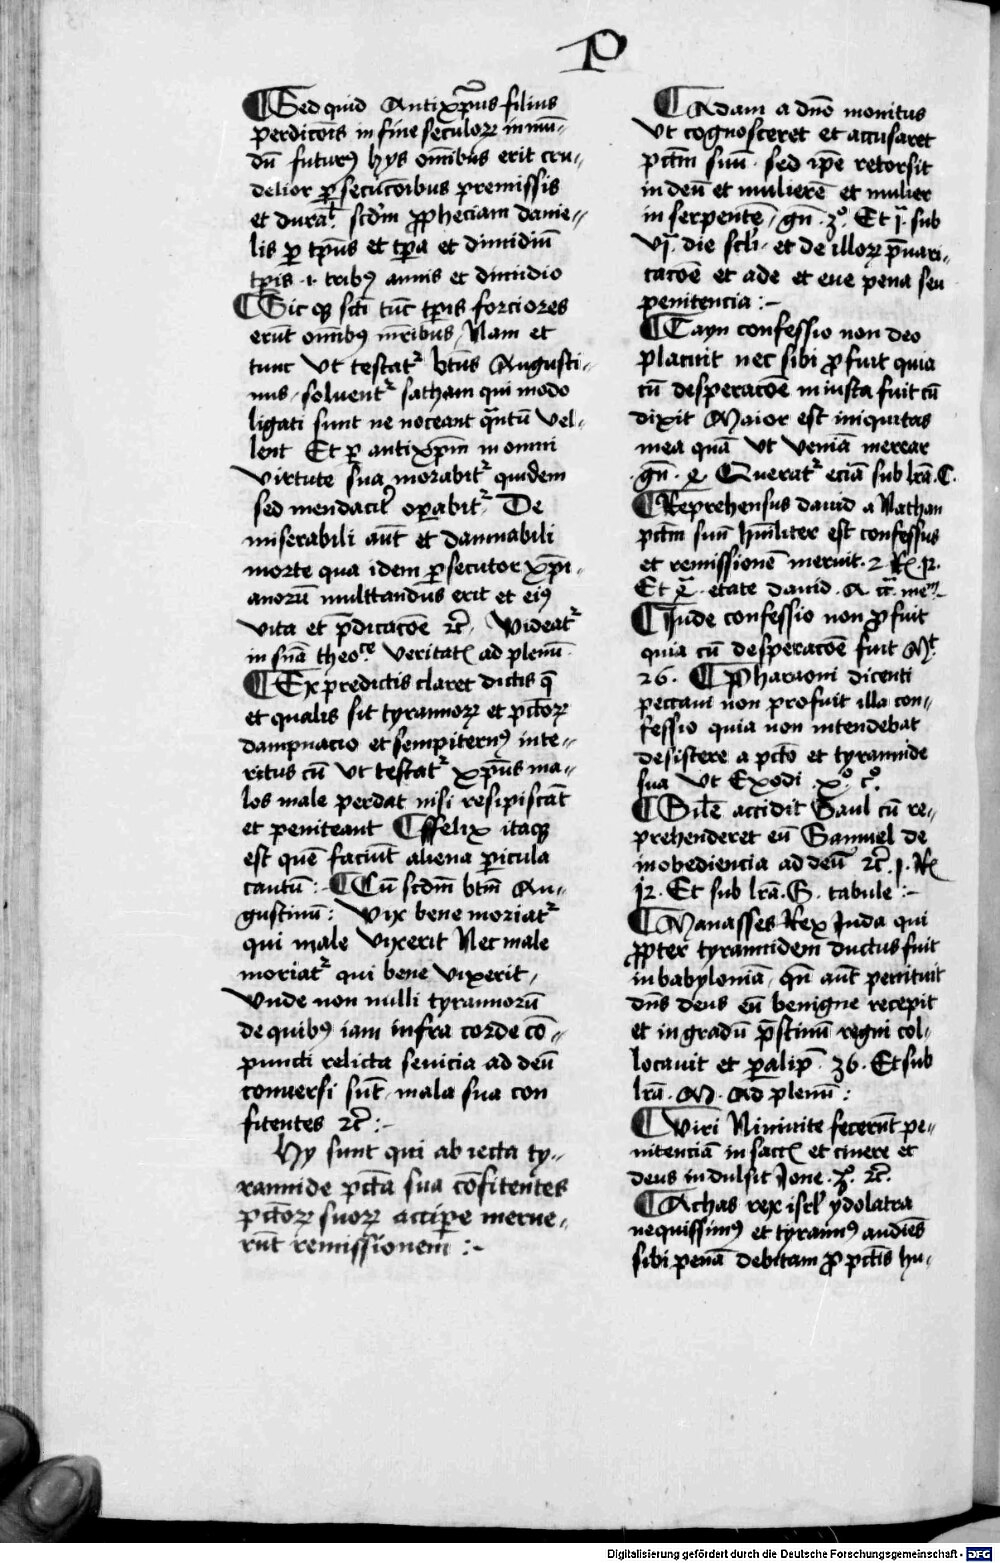 P
¶ Sed quid Antixp̄us filius
perdicōis in fine seculoꝝ in mū-
dū futurꝰ hys om̄ibus erit cru-
delior ꝑsecucōibus premissis
et durat̄ scd̄m ꝓpheciam danie-
lis ꝑ tp̄us et tp̄a et dimidiū
tp̄is .i. tribꝰ annis et dimidio
¶ Sic qꝫ sc̄i tūc tp̄is forciores
erūt om̄ibꝰ mr̄ibus / Nam et
tunc vt testatᷣ btūs Augusti-
nus / soluentᷣ sathan qui modo
ligati sunt ne noceant qᷓntū vel-
lent Et ꝑ antixp̄m in omni
virtute sua morabitᷣ quidem
sed mendacit̄ oꝑabitᷣ De
miserabili aūt et damnabili
morte qua idem ꝑsecutor xp̄i-
anorū multtandus erit et eiꝰ
vita et p̄dicacōe ⁊c̄ . Videatᷣ
in sūa theo.ce veritatꝭ ad plenū
¶ Ex predictis claret dictis q̄
et qualis sit tyrannoꝝ et pctōꝝ
dampnacio et sempiternꝰ inte-
ritus cū vt testatᷣ xp̄us ma-
los male perdat nisi resipiscāt
et peniteant ¶ Felix itaqꝫ
est quē faciūt aliena ꝑicula
cautū :- ¶ Cū scdm̄ btm̄ Au-
gustinū : Vix bene moriatᷣ
qui male vixerit Nec male
moriatᷣ qui bene vixerit /
Vnde non nulli tyrannorū
de quibꝰ iam infra corde cō-
puncti relicta seuicia ad deū
conuersi sūt mala sua con
fitentes ⁊c̄ :-
Hy sunt qui ab iecta ty-
rannide pctā sua cōfitentes
pctōꝝ suoꝝ acciꝑe merue-
rūt remissionem :-
¶ Adam a dn̄o monitus
vt cognosceret et accusaret
pctm̄ suū . sed ip̄e retorsit
in deū et mulierē et mulier
in serpentē / gn̄ . 3º . Et .i. sub
vi . die scl̄i . et de illoꝝ p̄uari-
cacōe et ade et eue pena seu
penitencia :-
¶ Cayn confessio non deo
placuit nec sibi ꝓfuit quia
cū desperacōe iniusta fuit cū
dixit Maior est iniquitas
mea quā vt veniā merear
gn̄ . 4 . Queratᷣ eciā sub lr̄a . C .
¶ Reprehensus dauid a Nathan
pctm̄ suū hūiliter est confessus
et remissionē meruit . 2 . Rꝭ . 12 .
Et etate dauid .
¶ Jude confessio non ꝓfuit
quia cū desperacōe fuit Mt
26 . ¶ Pharaoni dicenti
peccaui non profuit illa con-
fessio quia non intendebat
desistere a pctō et tyrannide
sua vt Exodi . xº . cº .
¶ Sil̄e accidit Saul cū re-
prehenderet eū Samuel de
inobediencia ad deū ⁊c̄ . 1 . Rꝭ
12 . Et sub lr̄a . S . tabule :-
¶ Manasses Rex Juda qui
ꝓpter tyrannidem ductus fuit
in babyloniā / qn̄ aūt penituit
dn̄s deus eū benigne recepit
et in gradū p̄stinū regni col-
locauit et ꝑalip̄ . 36 . Et sub
lr̄a . M . Ad plenū :
¶ Viri Niniuite fecerūt pe-
nitenciā in saccꝭ et cinere et
deus indulsit Jone . 3º . ⁊c̄ .
¶ Achas rex isrl̄ ydolatra
nequissimꝰ et tyrannꝰ audiēs
sibi penā debitam ꝓ pctīs hu-
Digitalisierung gefördert durch die Deutsche Forschungsgemeinschaft - DFG